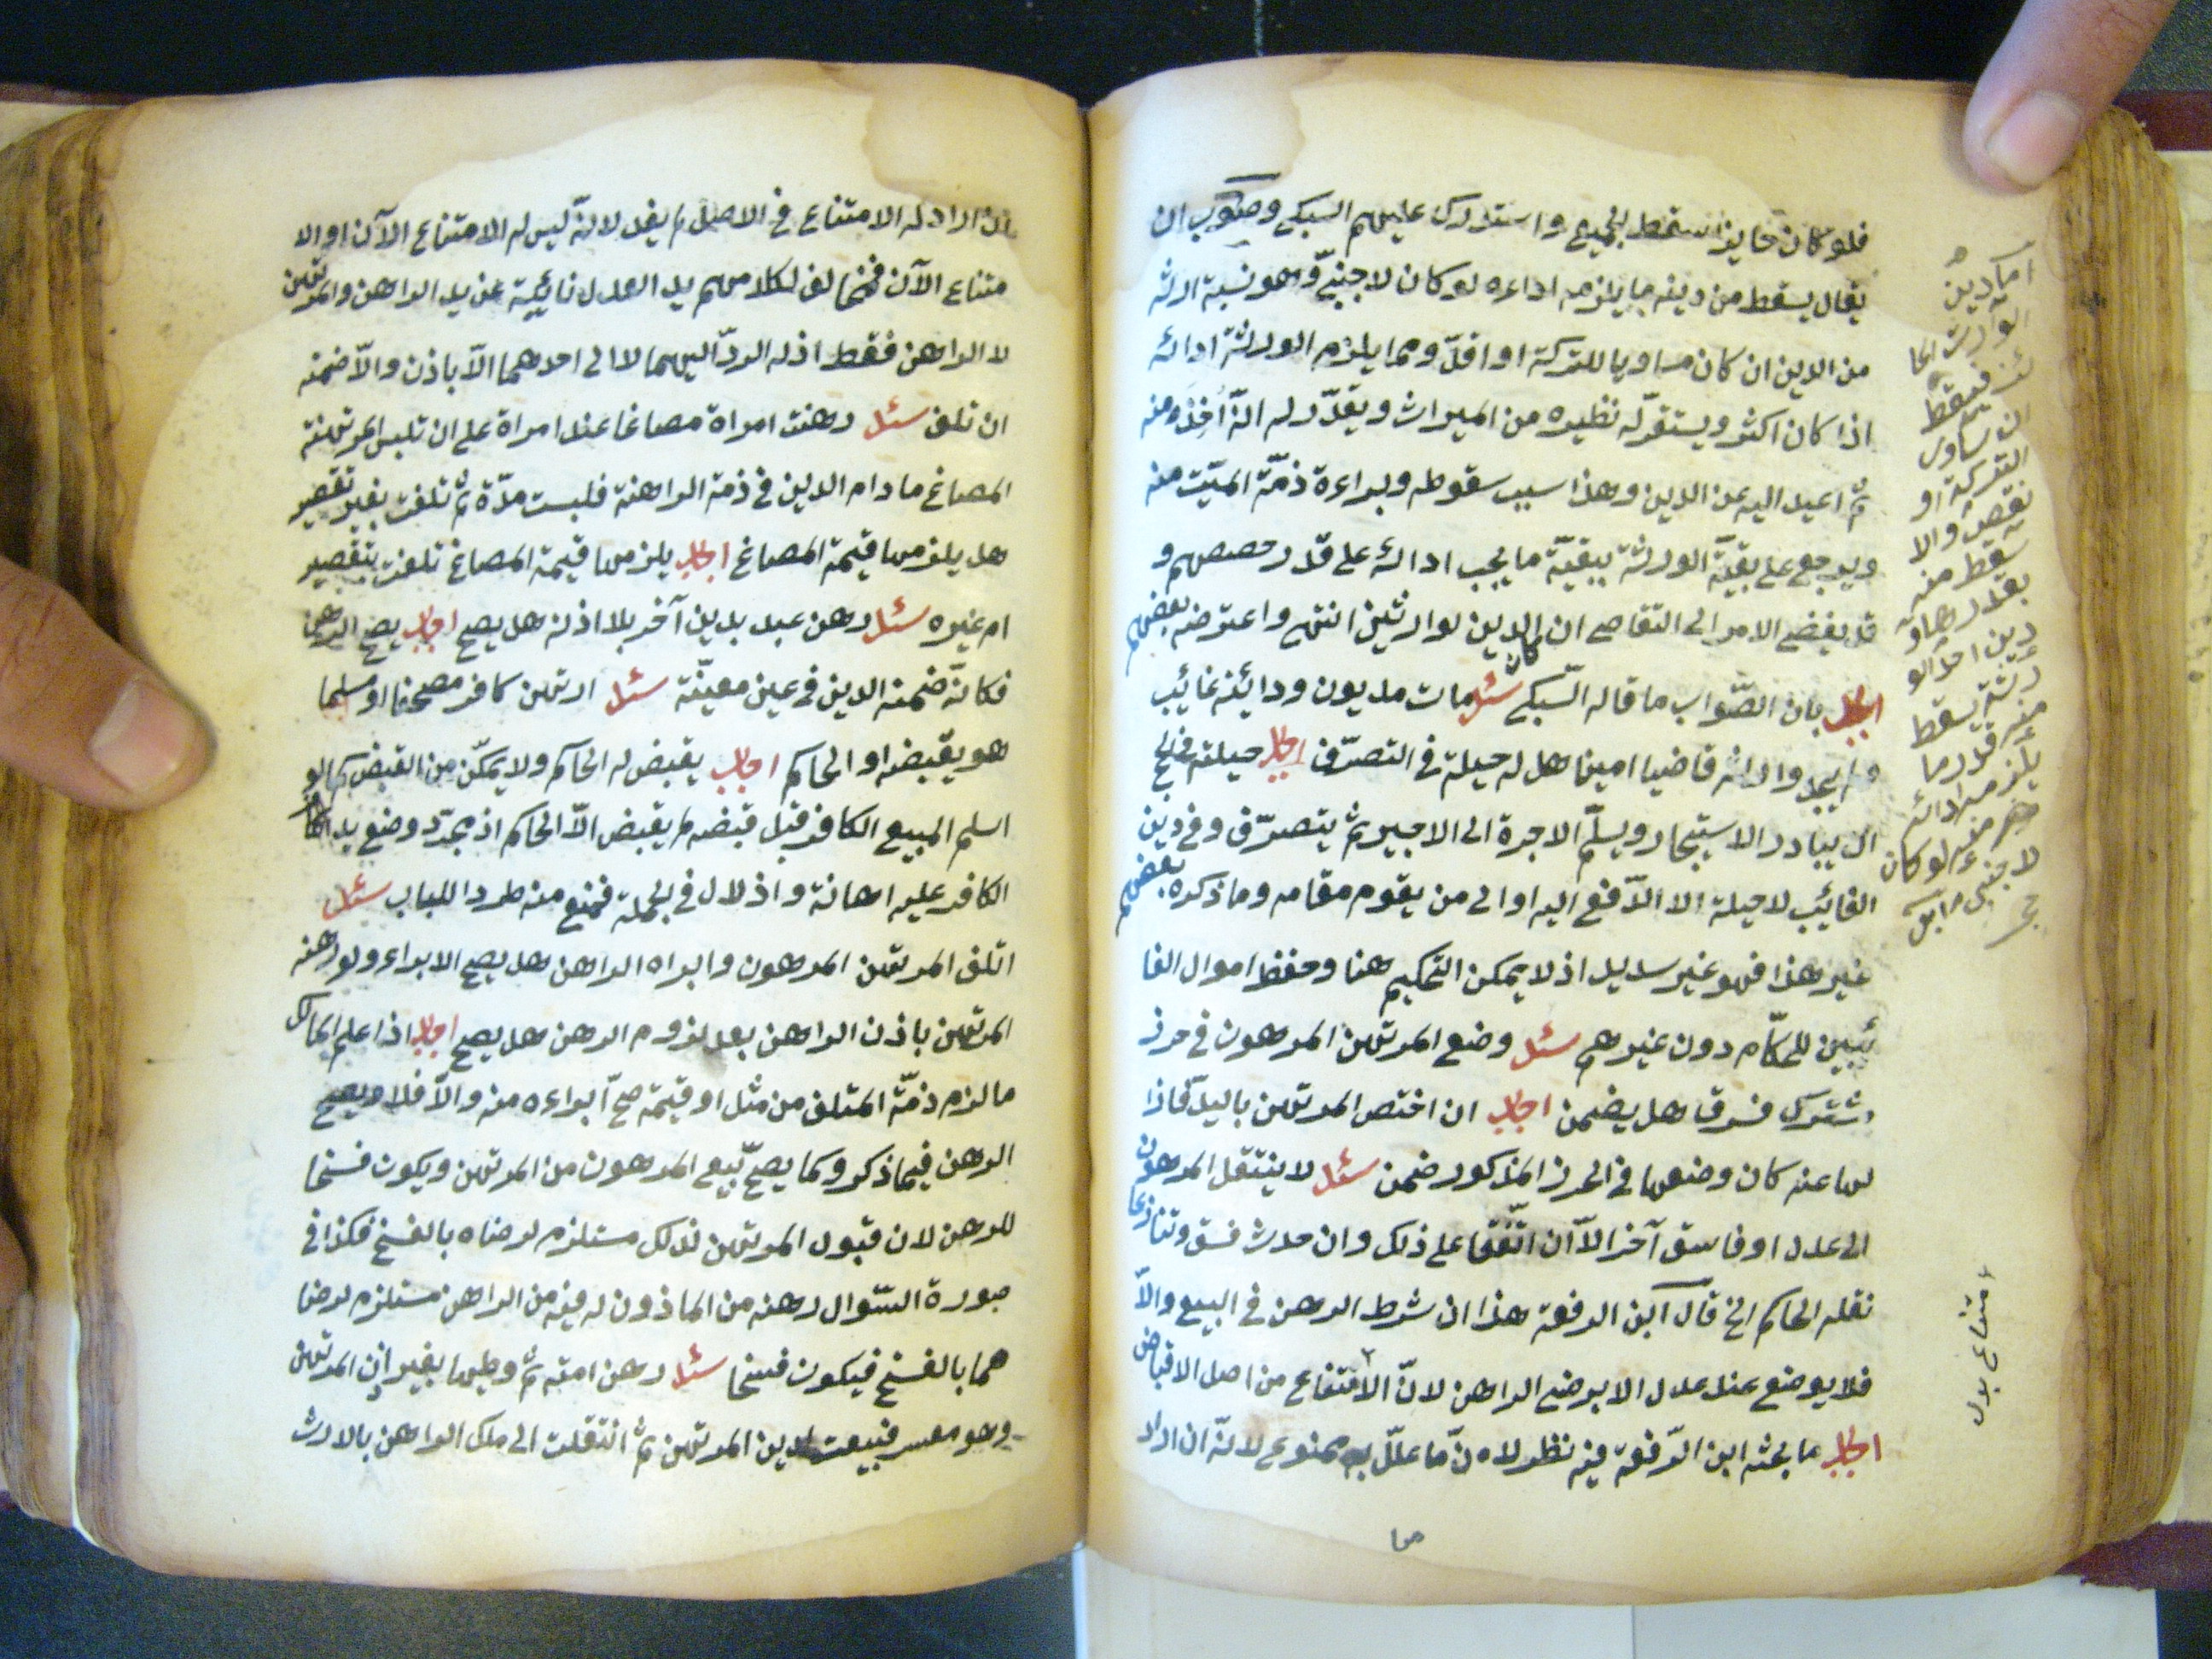 فلو كان حايزا سقط الجميع واستدرك عليهم السبكي وصوّب ان
يقال يسقط من دينه ما يلزمه اداءه لو كان لاجنبيّ وهو نسبة ارثه
من الدين ان كان مساويا للتركة او اقلّ ومما يلزم الورثة ادائه
اذا كان اكثر ويستقرّ له نظيره من الميراث ويقدّر له انّه أخذه منه
ثمّ اعيد اليه عن الدين وهذا سبب سقوطه وبراءة ذمّة الميّت منه
ويرجع على بقيّة الورثة ببقيّة ما يجب ادائه على قدر حصصهم و
قد يفضي الامر الى التقاص ان كان الدين لوارثين انتهى واعترضه بعضهم
اجاب بان الصّواب ما قاله السّبكي سئل مات مديون ودائنه غائب
ولم يجد وارثه قاضيا امينا هل له حيلة في التصرّف اجاب حيلته في الحج
ان يبادر الاستيجار ويسلّم الاجرة الى الاجير ثم يتصرّف وفي دين
الغائب لا حيلة الا الدّفع اليه او الى من يقوم مقامه وما ذكره بعضهم
غير هذا فهو غير سديد اذ لا يمكن التحكيم هنا وحفظ اموال الغا
ئبين للحكّام دون غيرهم سئل وضع المرتهن المرهون في حرز
مشترك فسرق هل يضمن اجاب ان اختص المرتهن باليد فاذا
لها عنه كان وضعها في الحرز المذكور ضمن سئل لا ينتقل المرهون
الى عدل او فاسق آخر الّا ان اتّفقا على ذلك وان حدث فسق وتنازعا
نقله الحاكم الخ قال ابن الرفعة هذا ان شرط الرهن في البيع والّا
فلا يوضع عند عدل الا برضى الراهن لانّ الامتناع من اصل الاقباض
اجاب ما بحثه ابن الرّفعة فيه نظر لانّ ما علّل به ممنوع لانّه ان اراد
اما دين
الوارث الحا
ئز فيسقط
ان ساوى
التركة او
نقص والا
سقط منه
بقدرها و
دين احد الو
رثة يسقط
منه قدر ما
يلزمه ادائه
لو كان
لاجنبي
امتناع بدل
ان اراد له الامتناع في الاصل لم يفد لانّه ليس له الامتناع الآن او الا
متناع الآن فمخالف لكلامهم يد العدل نائبة عن يد الراهن والمرتهن
لا الراهن فقط اذ له الردّ اليهما لا الى احدهما الّا باذن والّا ضمنه
ان تلف سئل رهنت امراة مصاغا عند امراة على ان تلبس المرتهنة
المصاغ ما دام الدين في ذمة الراهنة فلبست مدّة ثم تلفت بغير تقصير
هل يلزمها قيمة المصاغ اجاب يلزمها قيمة المصاغ تلفت بتقصير
ام غيره سئل رهن عبد بدين آخر بلا اذنه هل يصح اجاب يصح الرهن
فكانّه ضمنه الدين في عين معيّنة سئل ارتهن كافر مصحفا او مسلما
هو يقبضه او الحاكم اجاب يقبض له الحاكم ولا يمكّن من القبض كما لو
اسلم المبيع الكافر قبل قبضه لم يقبض الّا الحاكم اذ مجرّد وضع يد
الكافر عليه اهانة واذلال في الجملة فمنع منه طردا للباب سئل
اتلف المرتهن المرهون وابراه الراهن هل يصح الابراء ولو رهنه
المرتهن باذن الراهن بعد لزوم الرهن هل يصح اجاب اذا علم المالك
ما لزم ذمّة المتلف من مثل او قيمة صحّ ابراءه منه والّا فلا ويصح
الرهن فيما ذكر وكما يصحّ بيع المرهون من المرتهن ويكون فسخا
للرهن لان قبول المرتهن لذلك مستلزم لرضاه بالفسخ فكذا في
صورة السّوال رهنه من الماذون له فيه من الراهن مستلزم لرضا
هما بالفسخ فيكون فسخا سئل رهن امته ثمّ وطيها بغير اذن المرتهن
وهو معسر فبيعت لدين المرتهن ثمّ انتقلت الى ملك الراهن بالارث